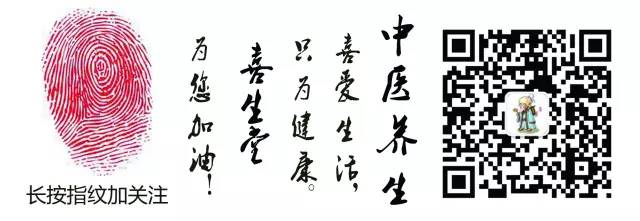 中医养生
喜爱生活，
只为健康。
喜生堂
为您加油！
长按指纹加关注